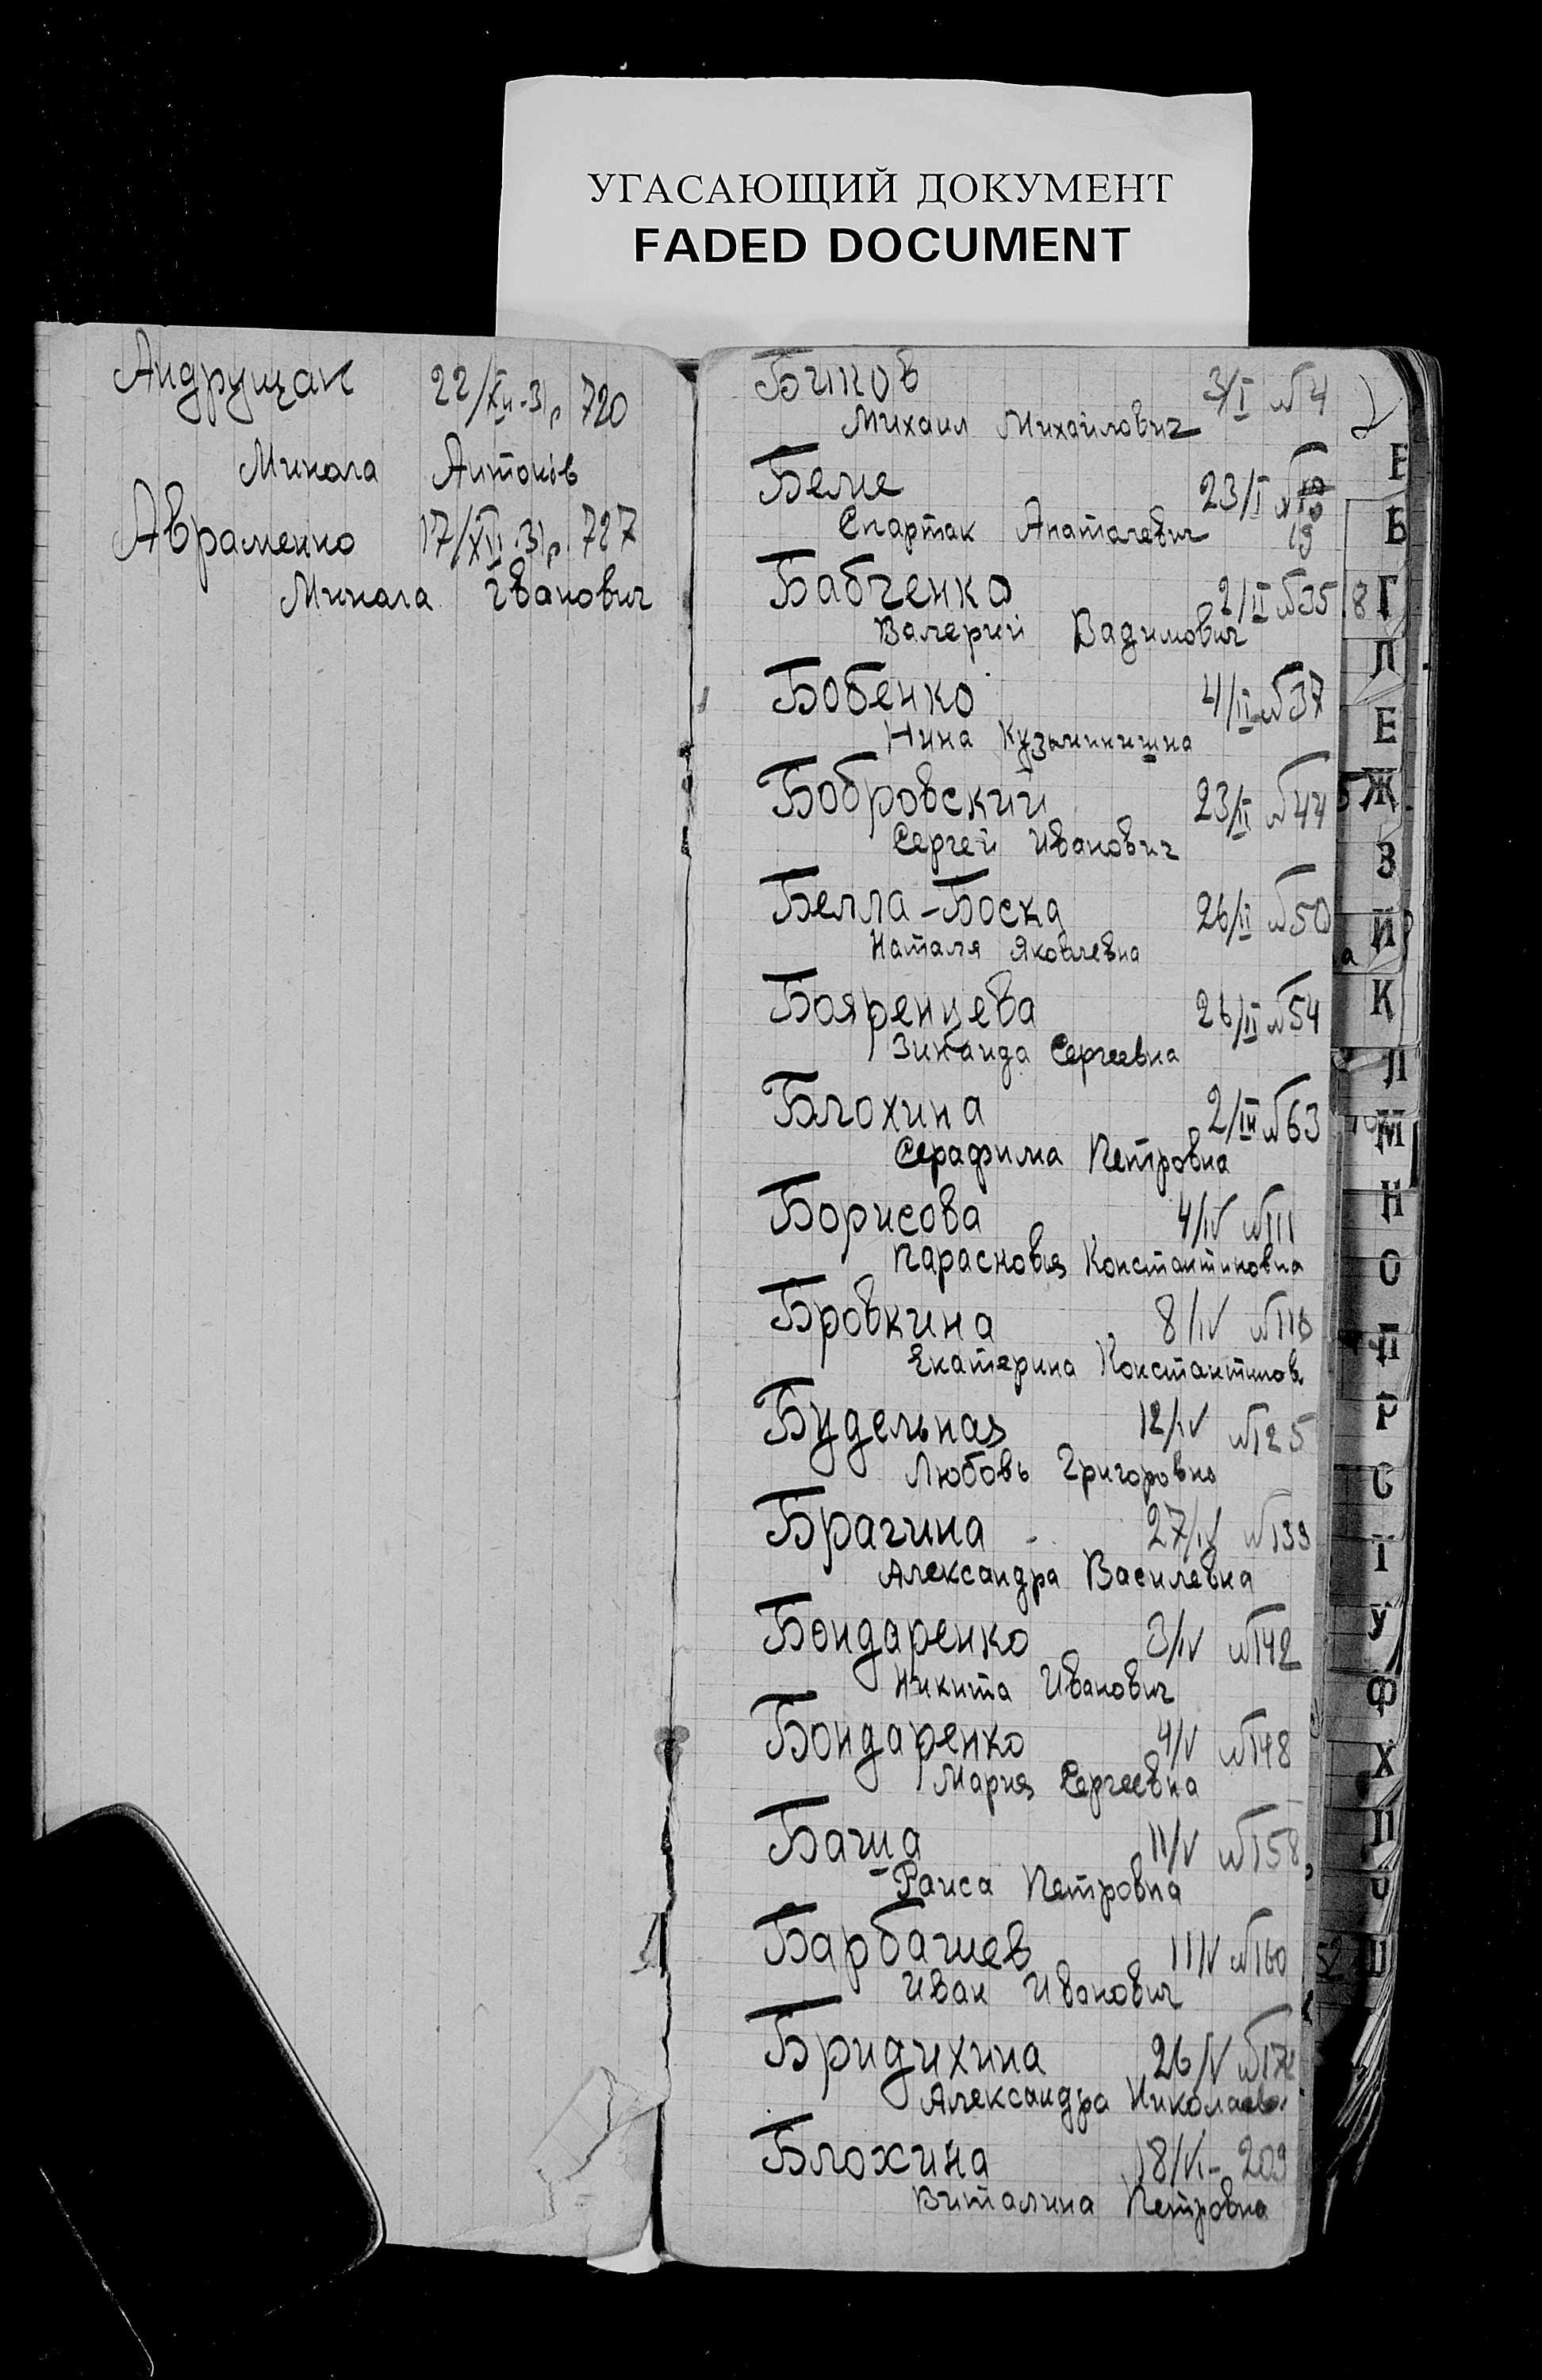 УГАСАЮЩИЙ ДОКУМЕНТ
FADED DOCUMENT
Андрущак 22/XII-31р 720
Микола Антонів
Авраменко 17/XII-31р. 727
Микола Іванович
Биков 3/I №4
Михаил Михайлович
Беме 23/I № 19
Спартак Анатолевич
Бабченко 2/II №35
Валерий Вадимович
Бобенко 4/II №37
Нина Кузьминишна
Бобровский 23/II №44
Сергей Иванович
Белла-Боска 26/II №50
Наталя Яковлевна
Бояренцева 26/II №54
Зинаида Сергеевна
Блохина 2/III №63
Серафима Петровна
Борисова 4/IV №111
Парасковья Константиновна
Бровкина 8/IV
Екатерина Константинов
Будельная 12/IV №125
Любовь Григоровна
Брагина 27/IV №139
Александра Василевна
Бондаренко 3/IV №142
Никита Иванович
Бондаренко 4/V №148
Мария Сергеевна
Баша 11/V №158
Раиса Петровна
Барбашев 11/V №160
Иван Иванович
Бридихина 26/V
Александра Николаев
Блохина 18/VI- 209
Виталина Петровна
Б
Г
Д
Е
Ж
З
И
К
Л
М
Н
О
П
Р
С
Т
У
Ф
Х
Ц
Ш